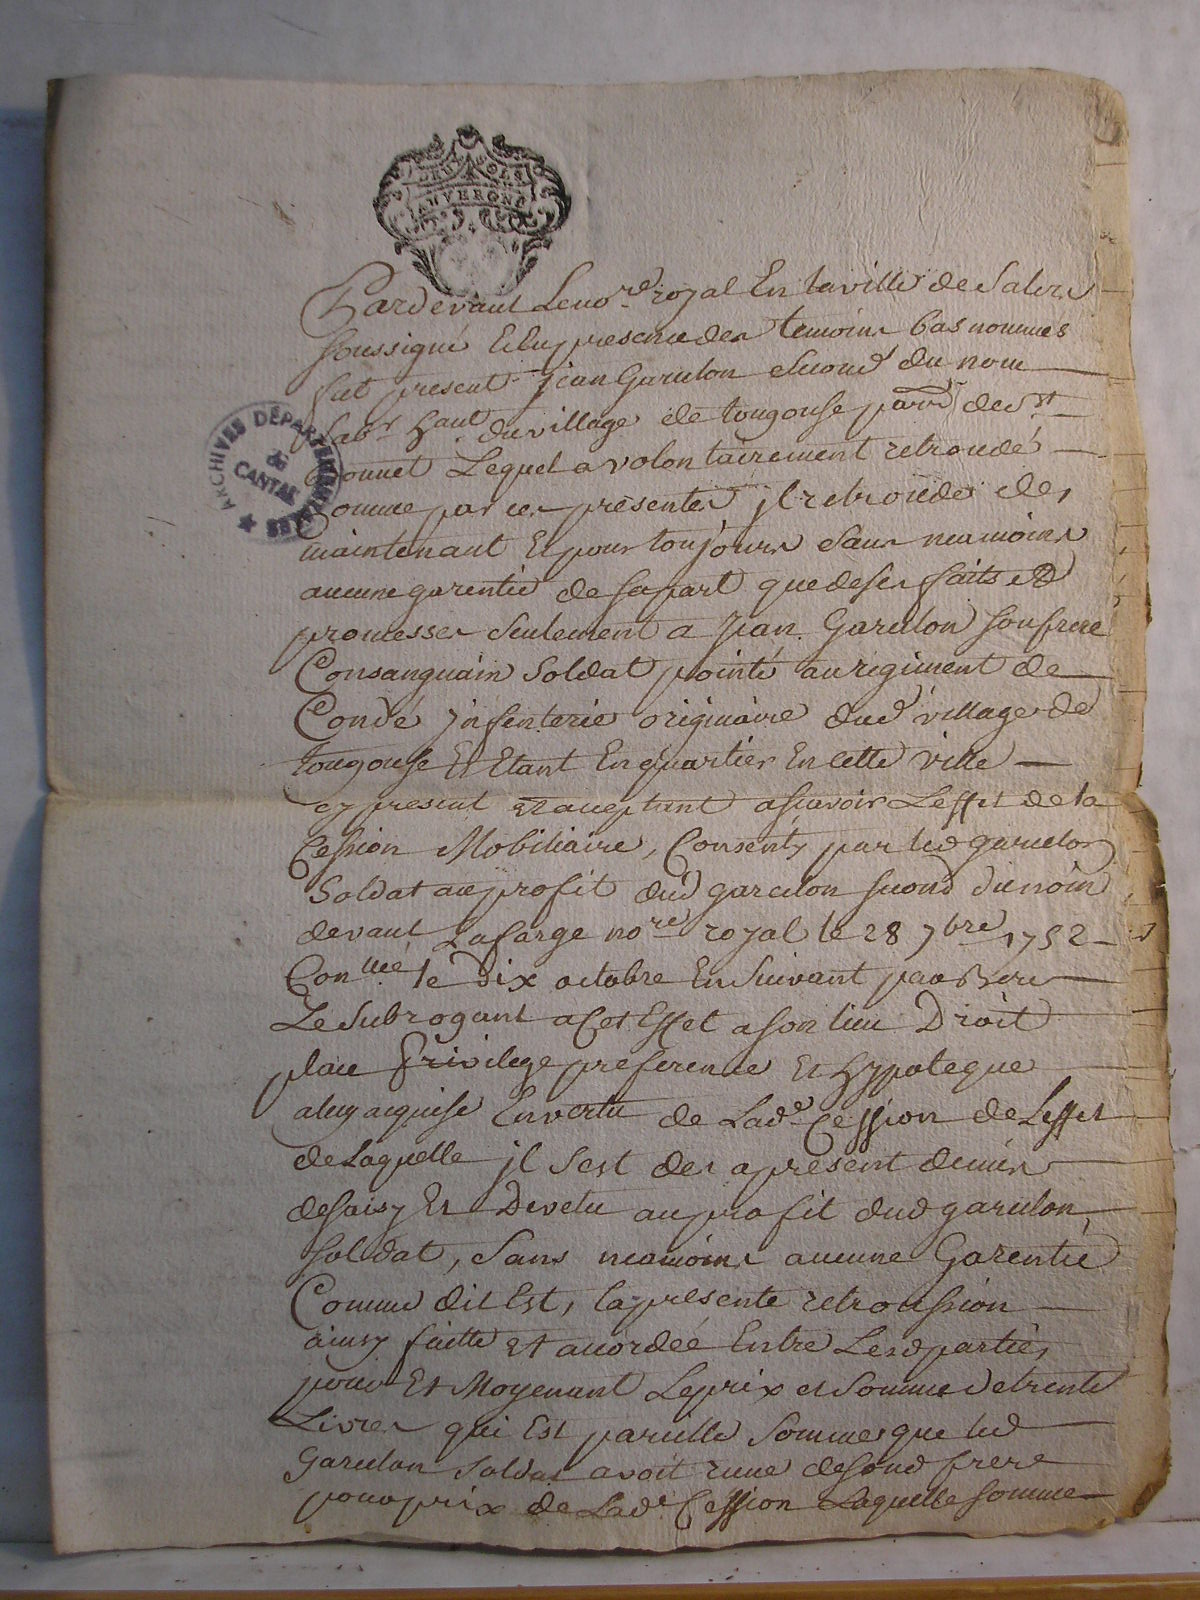 DEUX SOLS
AUVERGNE
ARCHIVES DÉPARTEMENTALES
du
CANTAL
Pardevant Le no.re royal En la ville de Salers
soussigné Et En presence des temoins bas nommés
fut present jean Garcelon second du nom
lab.r hant. du village de tougouse parr. de St
bonnet Lequel a volontairement retroucdé
Comme par ces presentes jl retroucde des
maintenant Et pour toujours sans neamoins
aucune garentie de sa part que de ses faits et
promesses seulement a jean Garcelon son frere
Consanguain soldat pointé au regiment de
Condé jnfenterie originaire dud village de
tougouse Et Etant En quartier En cette ville
cy present et aceptant ascavoir L'effet de la
Cession Mobiliaire, Consenty par led garcelon
soldat au profit dud garcelon second du nom
devant Lafarge no.re royal le 28 7bre 1752
Con.llé le dix octobre Ensuivant par
Le Subrogant a Cet Effet a son lieu Droit
place privilege preference Et hypoteque
a luy acquise En vertu de Lad.e Cession de Leffet
de Laquelle jl s'est des a present demis
desaisy Et Devetu au profit dud garcelon
soldat, sans neamoins aucune Garentie
Comme dit Est, la presente retrocession
ainsy faitte et acordéé Entre Lesd parties
pour Et Moyenant Le prix et somme de trente
Livres qui Est pareille somme que led
Garcelon soldat avoit receue de sond frere
pour prix de Lad.e Cession Laquelle somme